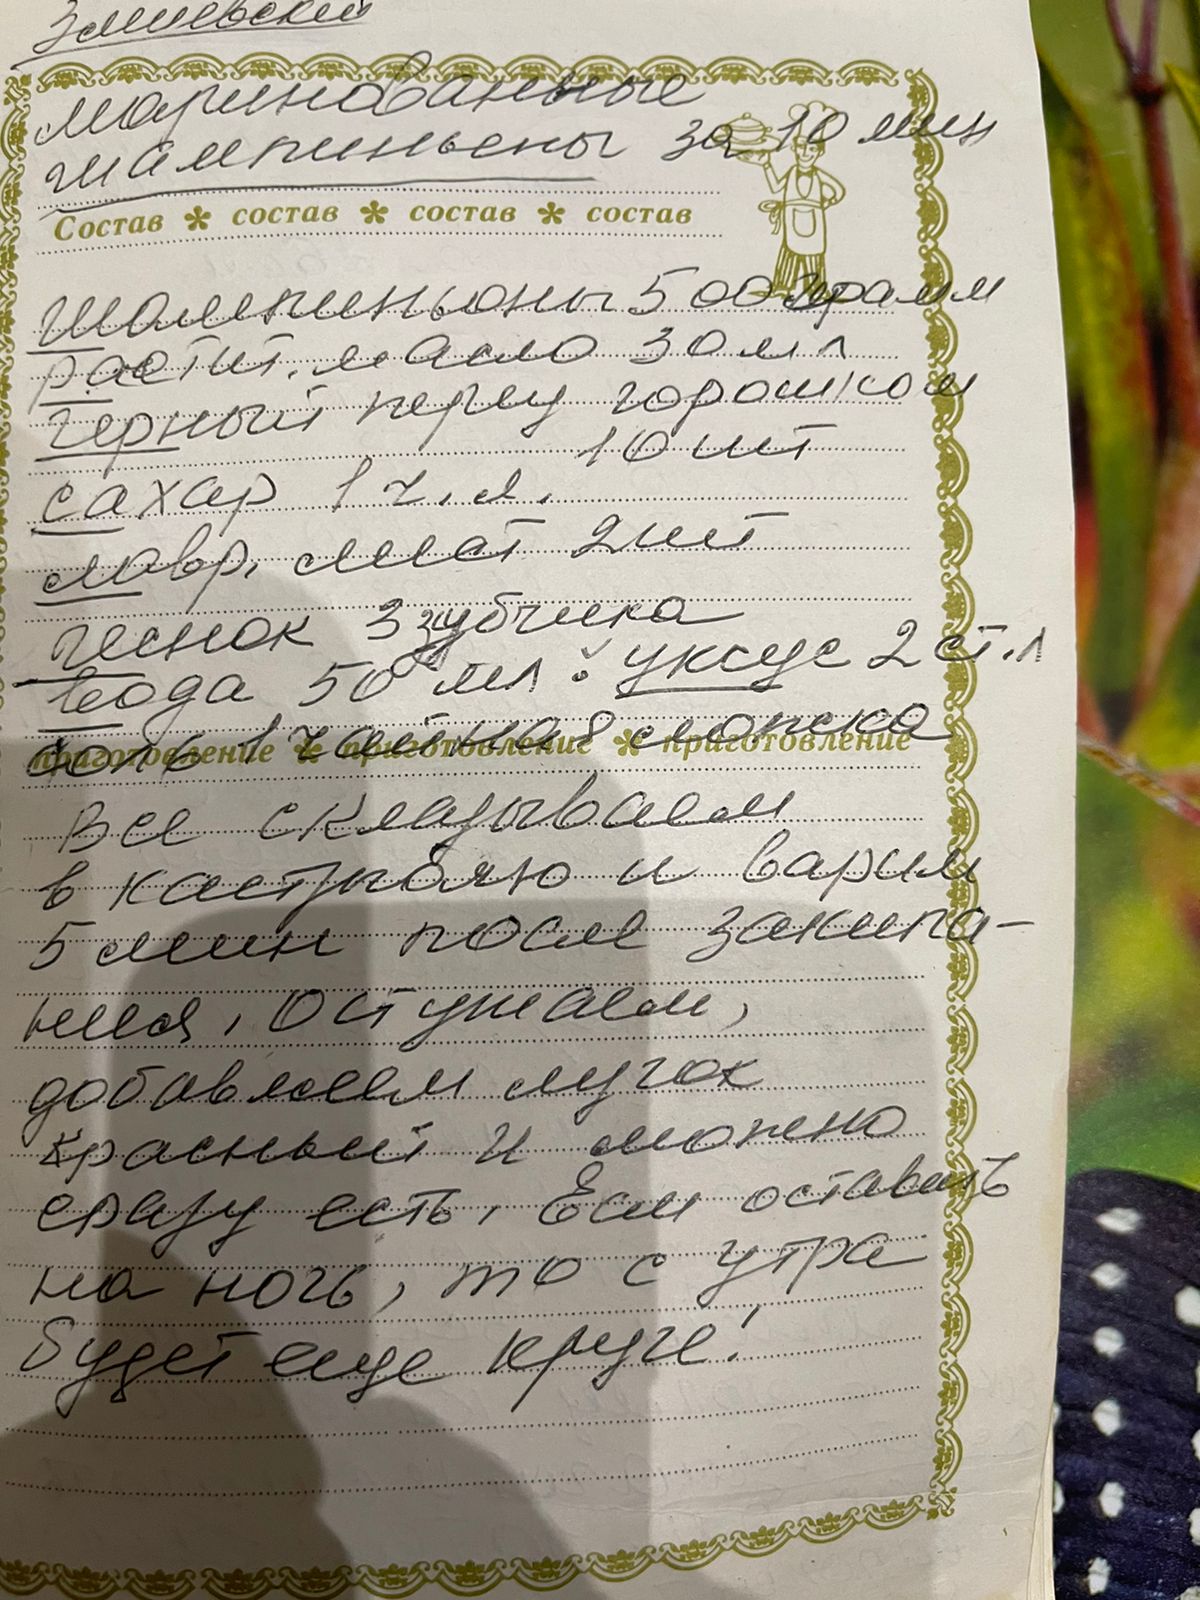 Змиевский
Маринованные
шампиньены за 10 мин
Состав * состав * состав * состав
Шампиньоны 500 грамм
растит. масло 30 мл
черный перец горошком
10 шт
сахар 1 ч.л.
лавр. лист 2 шт
чеснок 3 зубчика
вода 50 мл : уксус 2 ст.л
соль 1 чайная ложка
приготовление * приготовление * приготовление
Все складываем
в кастрюлю и варим
5 мин после закипа-
ния. Остужаем,
добавляем лучок
красный и можно
сразу есть. Есл оставить
на ночь, то с утра
будет еще круче!